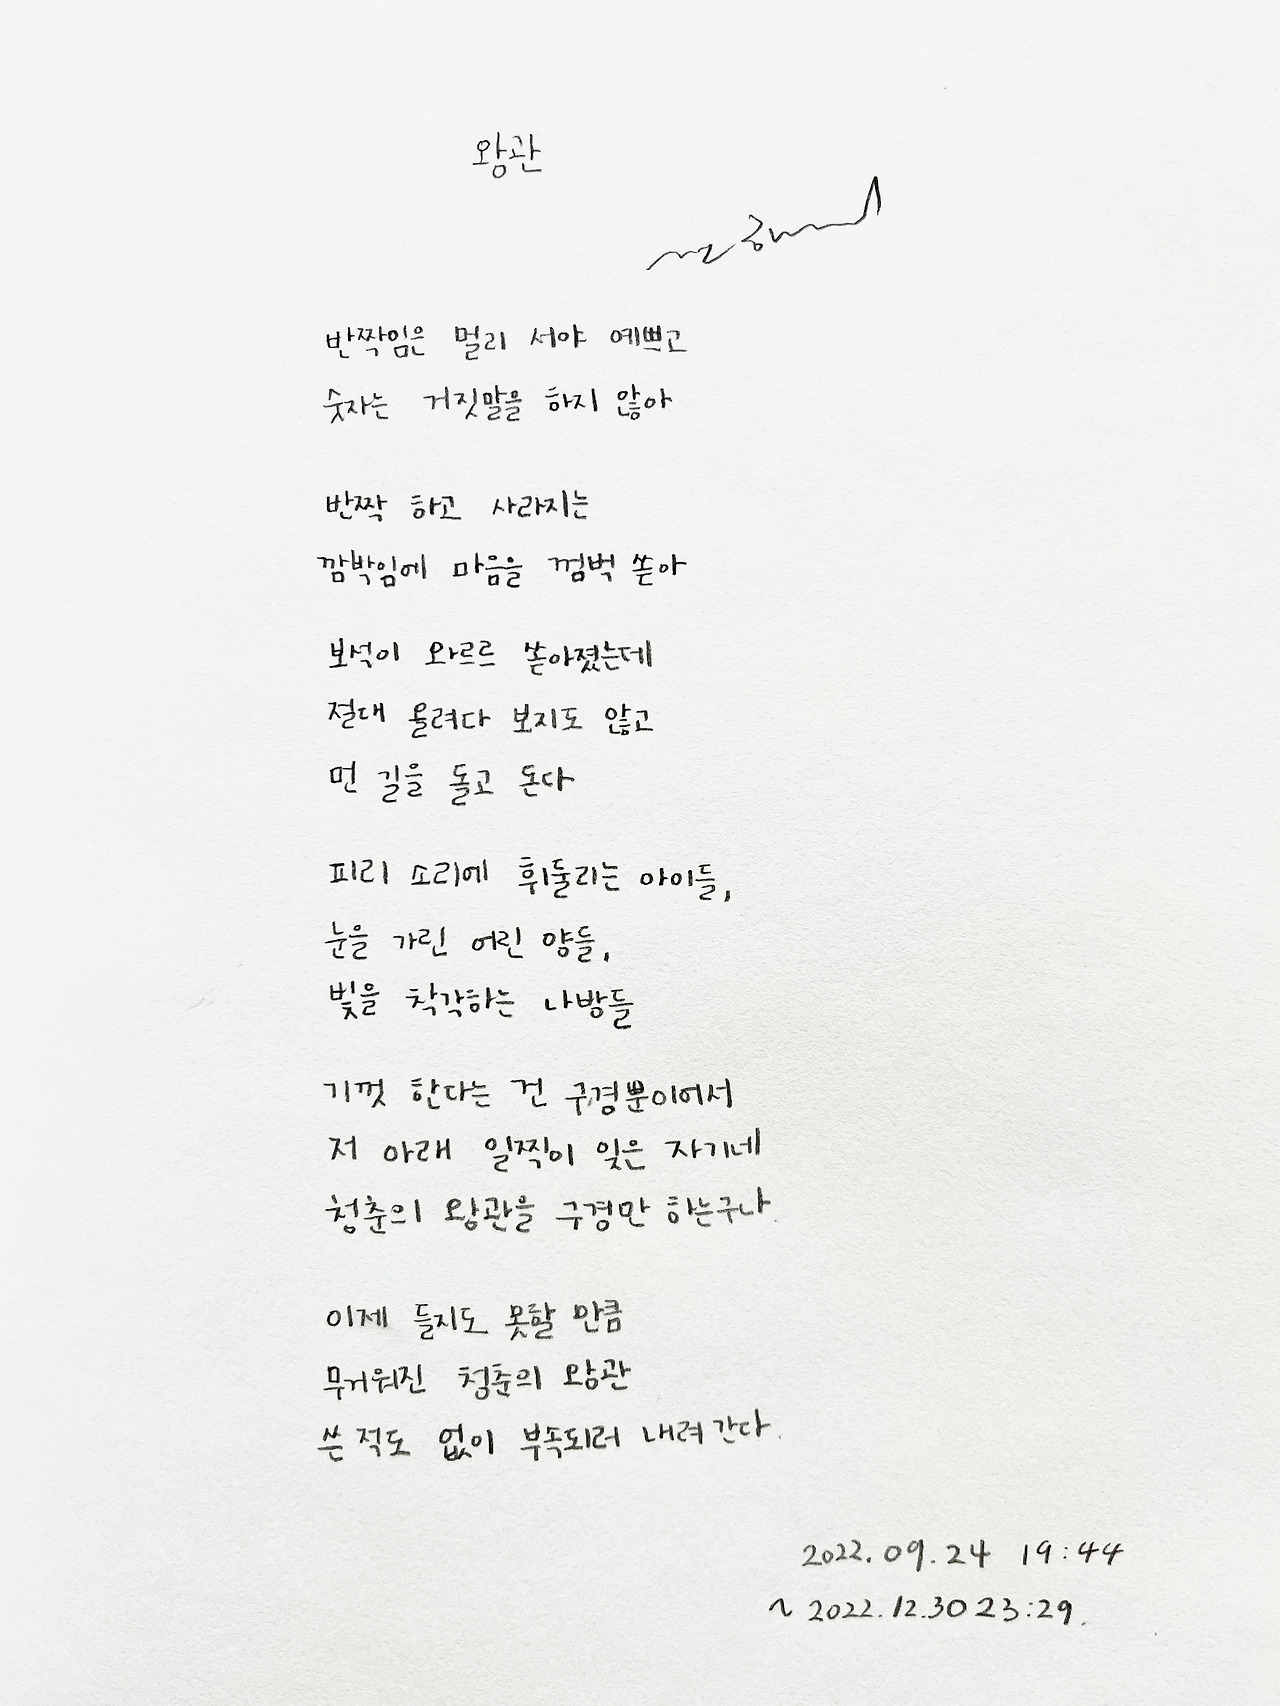 왕관
반짝임은 멀리 서야 예쁘고
숫자는 거짓말을 하지 않아
반짝 하고 사라지는
깜박임에 마음을 껌벅 쏟아
보석이 와르르 쏟아졌는데
절대 올려다 보지도 않고
먼 길을 돌고 돈다
피리 소리에 휘둘리는 아이들,
눈을 가린 어린 양들,
빛을 착각하는 나방들
기껏 한다는 건 구경뿐이어서
저 아래 일찍이 잊은 자기네
청춘의 왕관을 구경만 하는구나.
이제 들지도 못할 만큼
무거워진 청춘의 왕관
쓴 적도 없이 부속되러 내려간다.
2022.09.24 19:44
~ 2022.12.30 23:29.